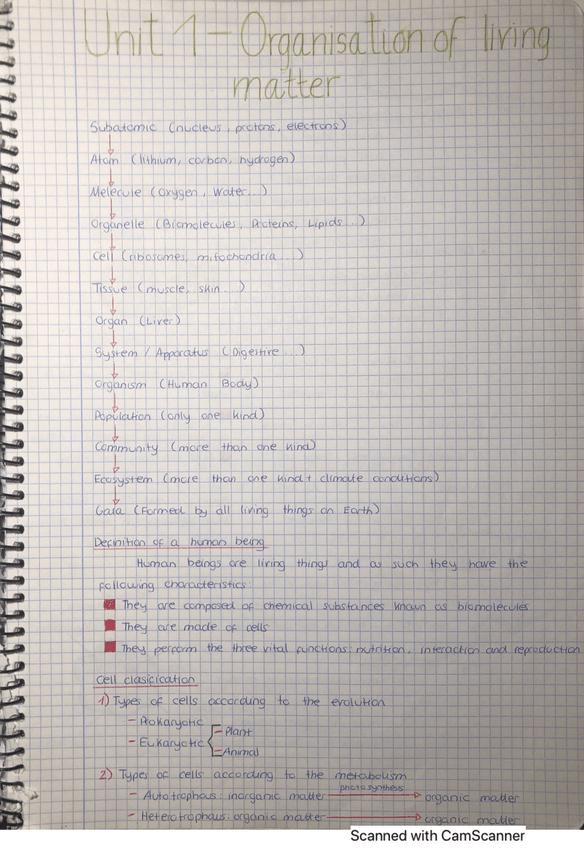 Unit 1 - Organisation of living
matter
Subatomic (nucleus, protons, electrons)
Atom (lithium, carbon, hydrogen)
Melecule (Oxygen, Water...)
Organelle (Biomolecules, Proteins, Lipids...)
Cell (ribosomes, mitochondria...)
Tissue (muscle, skin...)
Organ (Liver)
System / Apparatus (Digestive...)
Organism (Human Body)
Population (only one kind)
Community (more than one kind)
Ecosystem (more than one kind + climate conditions)
Gaia (Formed by all living things on Earth)
Definition of a human being
Human beings are living things and as such they have the
following characteristics:
They are composed of chemical substances known as biomolecules
They are made of cells
They perform the three vital functions: nutrition, interaction and reproduction
Cell clasicication
1) Types of cells according to the evolution
- Prokaryotic
- Plant
- Eukaryotic
- Animal
2) Types of cells according to the metabolism
photosynthesis
- Autotrophous: inorganic matter → organic matter
- Heterotrophous: organic matter → organic matter
Scanned with CamScanner